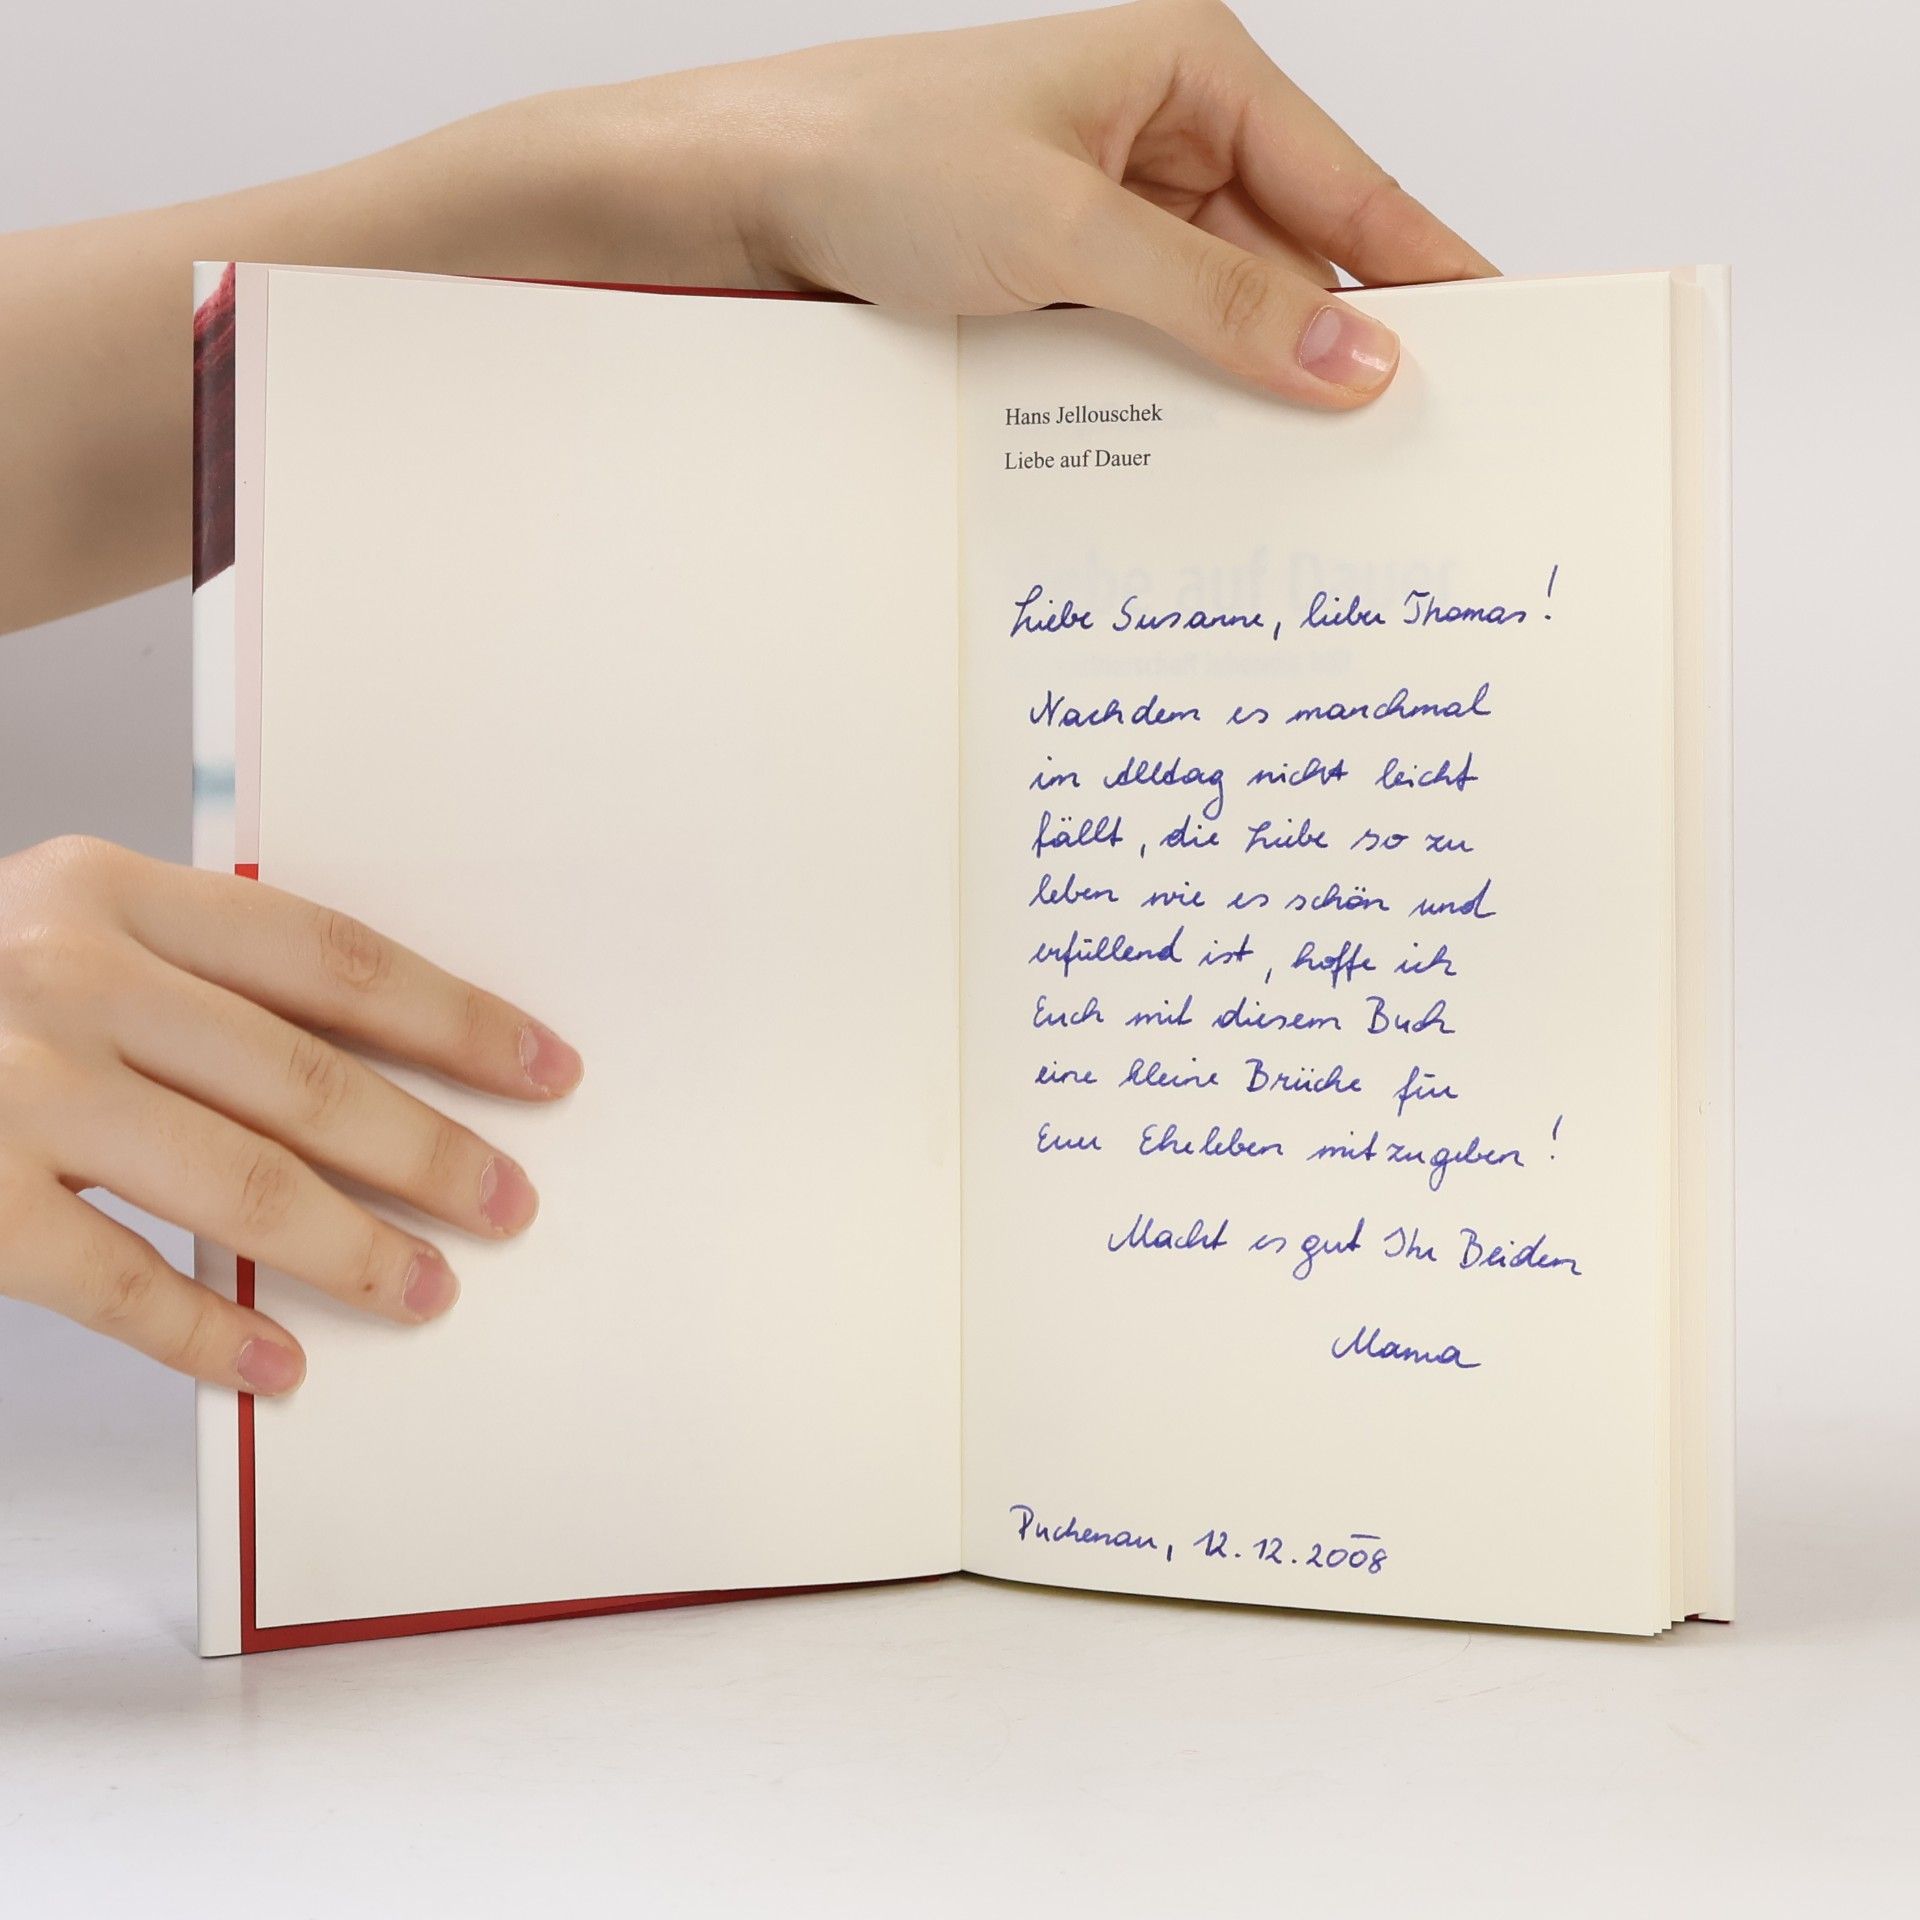 Hans Jellouschek
Liebe auf Dauer
Liebe Susanne, lieber Thomas!
Nachdem es manchmal
im Alltag nicht leicht
fällt, die Liebe so zu
leben wie es schön und
erfüllend ist, hoffe ich
Euch mit diesem Buch
eine kleine Brücke für
Euer Eheleben mitzugeben!
Macht es gut Ihr Beiden
Mama
Puchenau, 12.12.2008